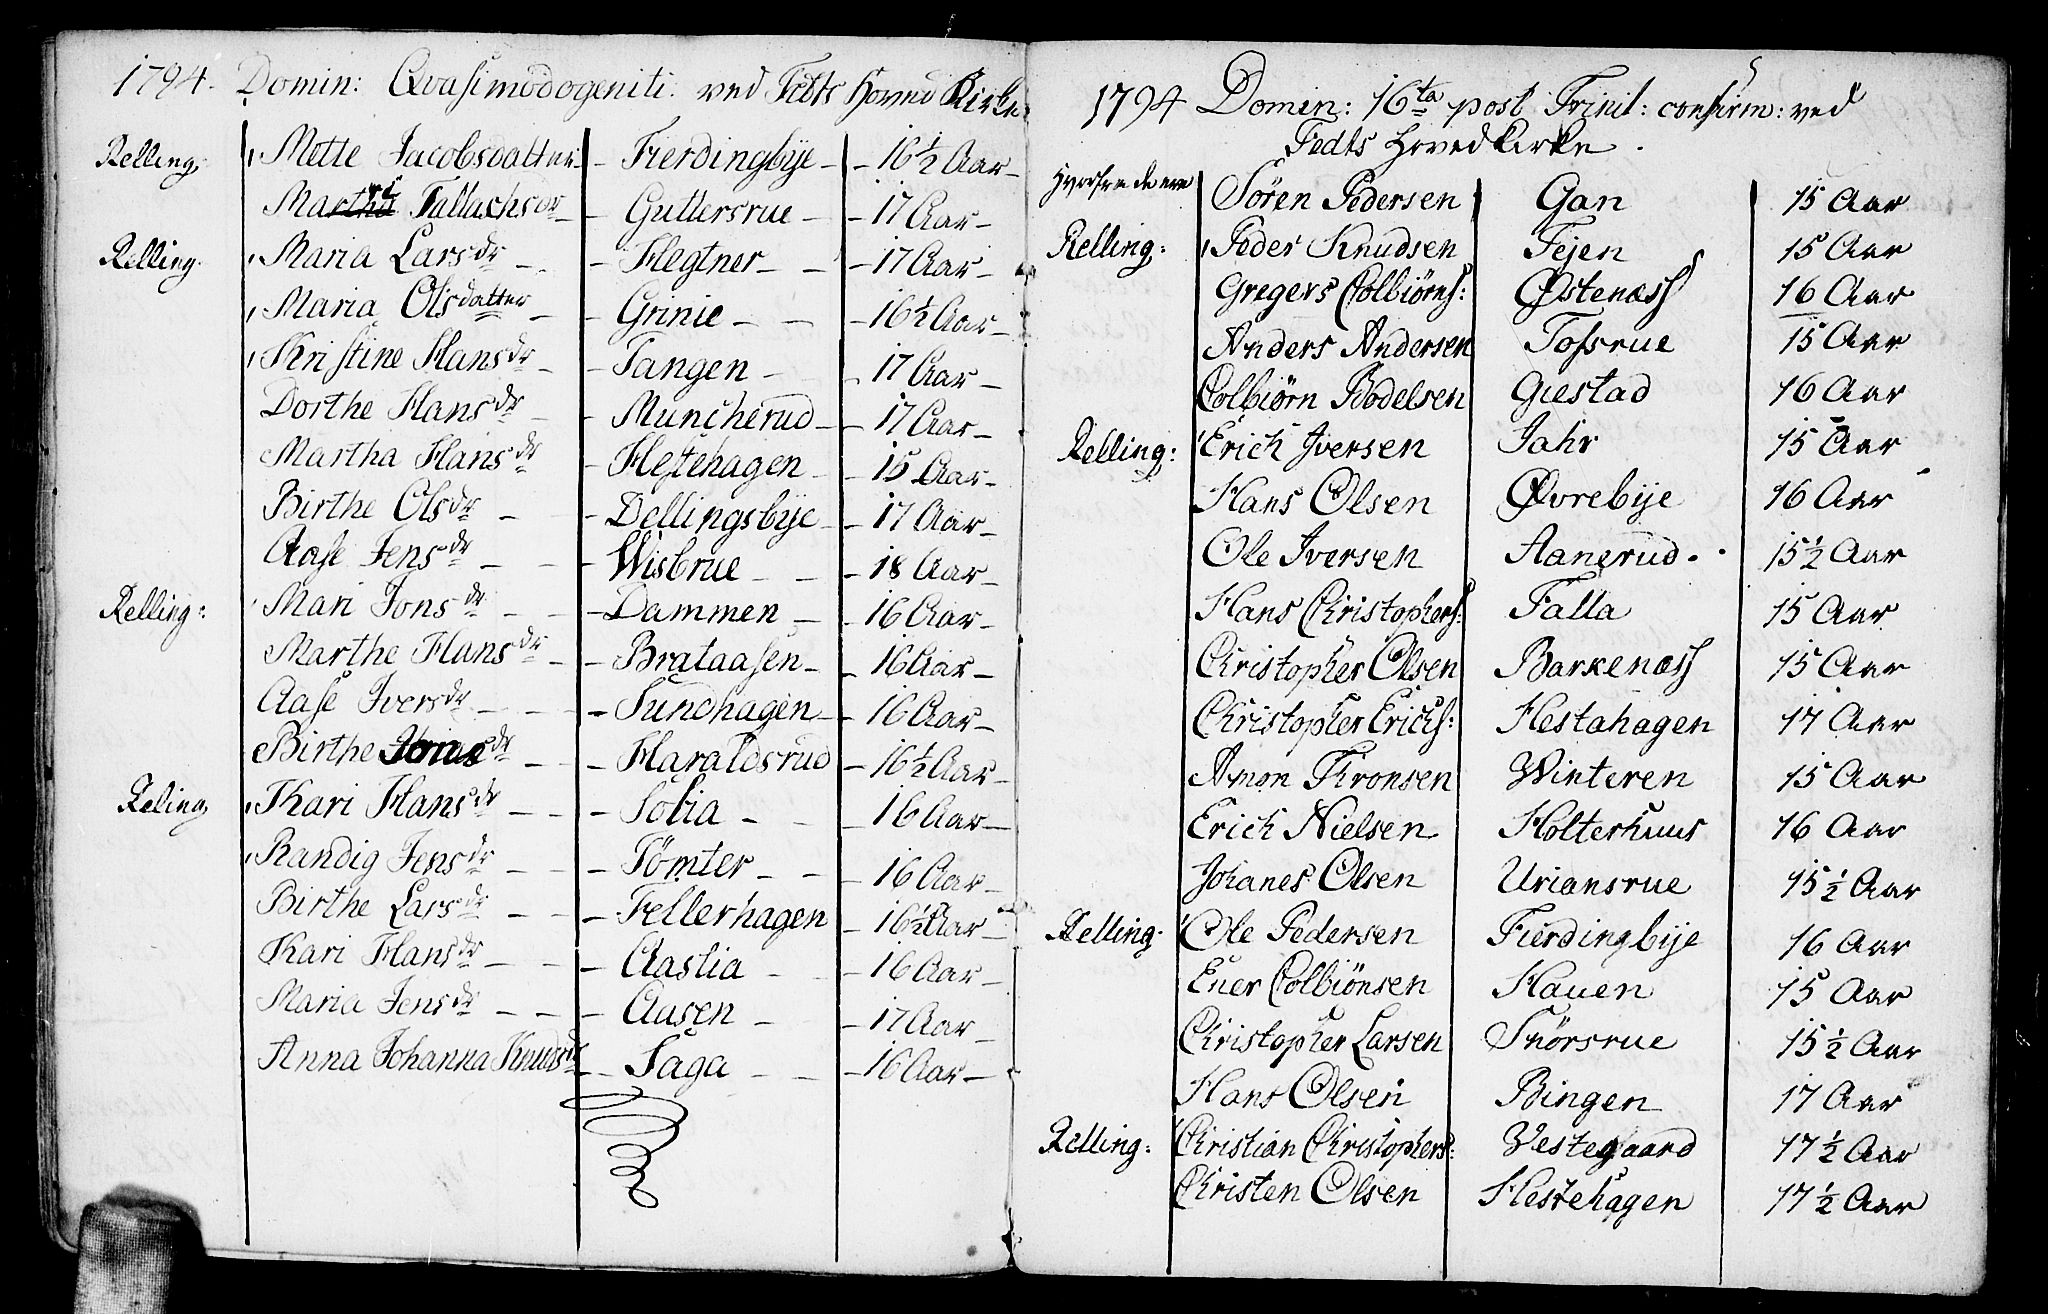 1794. Domin: Qvasimodogeniti. ved Fedts Hoved Kirke:
Relling: Mette Jacobsdatter - Fierdingbye - 16 1/2 Aar
Mari Tallachsdr - Guttersrue - 17 Aar
Relling. Maria Larsdr - Hegtner - 17 Aar
Maria Olsdatter - Grinie - 16 1/2 Aar
Kristine Hansdr - Tangen - 17 Aar
Dorthe Hansdr - Muncherud - 17 Aar
Martha Hansdr - Hestehagen - 15 Aar
Birthe Olsdr - Dellingsbye - 17 Aar
Aase Jensdr - Wisbrue - 18 Aar
Relling: Mari Jonsdr - Dammen - 16 Aar
Marthe Hansdr - Brataasen - 16 Aar
Aase Iversdr - Sundhagen - 16 Aar
Birthe dr - Haraldsrud - 16 1/2 Aar
Reling Kari Hansdr - Solia - 16 Aar
Randig Jensdr - Tömter - 16 Aar
Birthe Larsdr - Fellerhagen - 16 1/2 Aar
Kari Hansdr - Aaslia - 16 Aar
Maria Jensdr - Aasen - 17 Aar
Anna Johanna Knudsdr - Saga - 16 Aar
1794 Domin: 16ta post Trinit: confirm: ved
Fedts Hovedkirke.
Hvorfra de ere Sören Pedersen Gan 15 Aar
Relling: Peder Knudsen Tejen 15 Aar
Gregers Colbiørns: Østenæss 16 Aar
Anders Andersen Tossrue 15 Aar
Colbiørn Bodelsen Giestad 16 Aar
Relling: Erich Iversen Jahr 15 Aar
Hans Olsen Øvrebije 16 Aar
Ole Iversen Aanerud. 15 1/2 Aar
Hans Christophers: Falla 15 Aar
Christopher Olsen Barkenæss 15 Aar
Christopher Erichs: Hestahagen 17 Aar
Amon Tronsen Winteren 15 Aar
Erich Nielsen Holterhuus 16 Aar
Johanes Olsen Uriansrue 15 1/2 Aar
Relling. Ole Pedersen Fierdingbije 16 Aar
Ener Colbiönsen Hauen 15 Aar
Christopher Larsen Snörsrue 15 1/2 Aar
Hans Olsen Bingen 17 Aar
Relling: Christian Christophers: Vestegaard 17 1/2 Aar
Christen Olsen Hestehagen 17 1/2 Aar